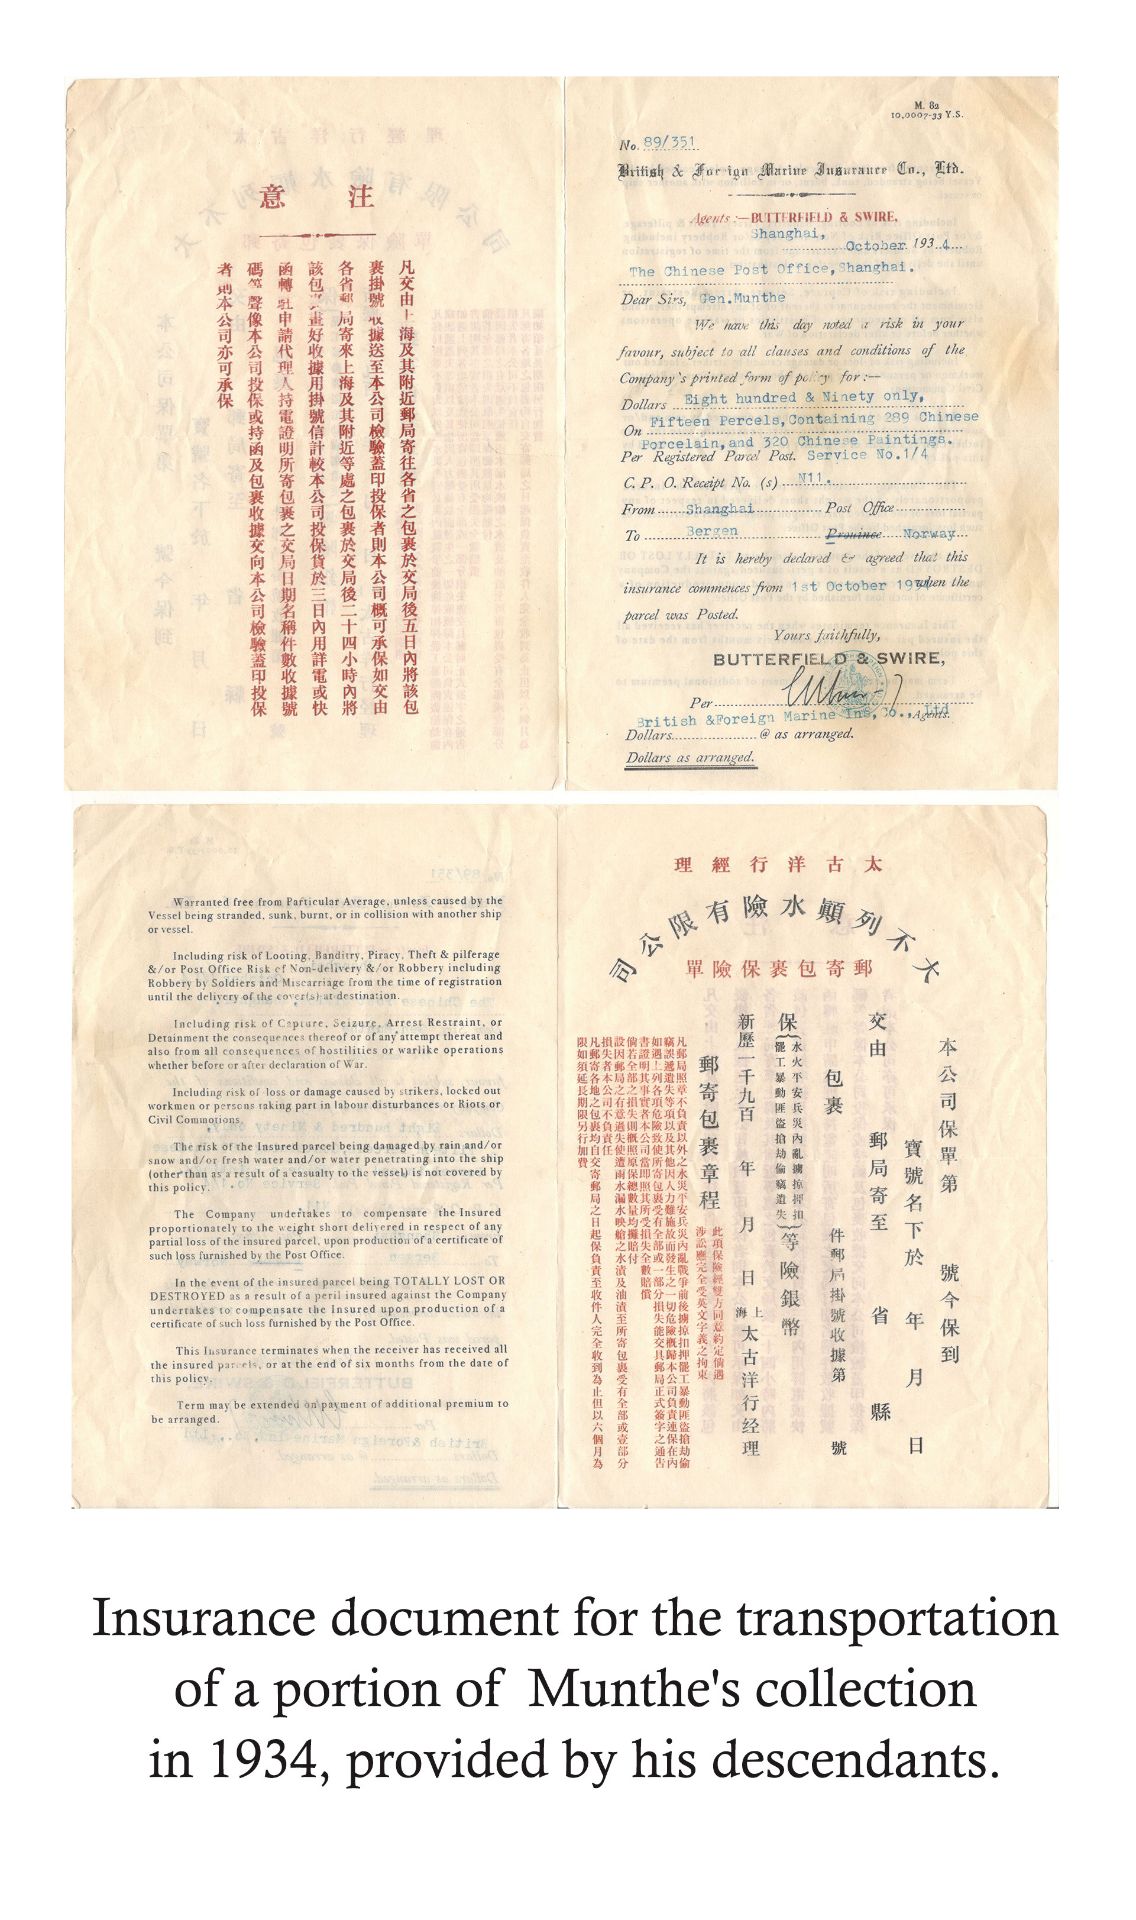 意 注
凡交由上海及其附近郵局寄往各省之包裹於交局後五日內將該包
裹掛號收據送至本公司檢驗蓋印投保者則本公司概可承保如交由
各省郵局寄來上海及其附近等處之包裹於交局後二十四小時內將
該包裹畫好收據用掛號信計較本公司投保貨於三日內用詳電或快
函轉駐申請代理人持電證明所寄包裹之交局日期名稱件數收據號
碼等聲像本公司投保或持函及包裹收據交向本公司檢驗蓋印投保
者則本公司亦可承保
M. 82
10,0007-33 Y.S.
No. 89/351
British & Foreign Marine Insurance Co., Ltd.
Agents :—BUTTERFIELD & SWIRE,
Shanghai,
October 1934
The Chinese Post Office, Shanghai.
Dear Sirs, Gen.Munthe
We have this day noted a risk in your
favour, subject to all clauses and conditions of the
Company's printed form of policy for :—
Dollars Eight hundred & Ninety only,
On Fifteen Percels, Containing 289 Chinese
Porcelain, and 320 Chinese Paintings.
Per Registered Parcel Post. Service No.1/4
C. P. O. Receipt No. (s) N11.
From Shanghai Post Office
To Bergen Province Norway
It is hereby declared & agreed that this
insurance commences from 1st October 1934 when the
parcel was Posted.
Yours faithfully,
BUTTERFIELD & SWIRE,
Per
British &Foreign Marine Ins, Co., Ltd Agents.
Dollars @ as arranged.
Dollars as arranged.
Warranted free from Particular Average, unless caused by the
Vessel being stranded, sunk, burnt, or in collision with another ship
or vessel.
Including risk of Looting, Banditry, Piracy, Theft & pilferage
&/or Post Office Risk of Non-delivery &/or Robbery including
Robbery by Soldiers and Miscarriage from the time of registration
until the delivery of the cover(s) at destination.
Including risk of Capture, Seizure, Arrest Restraint, or
Detainment the consequences thereof or of any attempt thereat and
also from all consequences of hostilities or warlike operations
whether before or after declaration of War.
Including risk of loss or damage caused by strikers, locked out
workmen or persons taking part in labour disturbances or Riots or
Civil Commotions.
The risk of the Insured parcel being damaged by rain and/or
snow and/or fresh water and/or water penetrating into the ship
(other than as a result of a casualty to the vessel) is not covered by
this policy.
The Company undertakes to compensate the Insured
proportionately to the weight short delivered in respect of any
partial loss of the insured parcel, upon production of a certificate of
such loss furnished by the Post Office.
In the event of the insured parcel being TOTALLY LOST OR
DESTROYED as a result of a peril insured against the Company
undertakes to compensate the Insured upon production of a
certificate of such loss furnished by the Post Office.
This Insurance terminates when the receiver has received all
the insured parcels, or at the end of six months from the date of
this policy.
Term may be extended on payment of additional premium to
be arranged.
理經行洋古太
司公限有險水顯列不大
單險保裹包寄郵
本公司保單第 號今保到
寶號名下於 年 月 日
交由 郵局寄至 省 縣
包裹 件郵局掛號收據第 號
保 水火平安兵災內亂擄掠押扣
罷工暴動匪盜搶劫偷竊遺失 等險銀幣
新歷一千九百 年 月 日 上海 太古洋行经理
郵寄包裹章程
此項保險經雙方同意約定倘遇
涉訟應完全受英文字義之拘束
凡郵局照章不負責以外之水災平安兵災內亂戰爭前後擄掠扣押罷工暴動匪盜搶劫偷
竊誤遞遺失等項以及其他因人力難施故而發生之一切危險概歸本公司負責連保在內
如遇上列各項危險致使所寄包裹受有全部或一部分損失能交具郵局正式簽字之通告
書證明其事實者本公司當即照其所受損失全數賠償
倘若全部之損失則概照原保總數量均攤賠付
設因郵局之有意過失使遭雨水漏水映艙之水漬及油漬至所寄包裹受有全部或壹部分
損失者本公司不負責任
凡郵寄各地之包裹均自交寄郵局之日起保負責至收件人完全收到為止但以六個月為
限如須延長期限另行加費
Insurance document for the transportation
of a portion of Munthe's collection
in 1934, provided by his descendants.